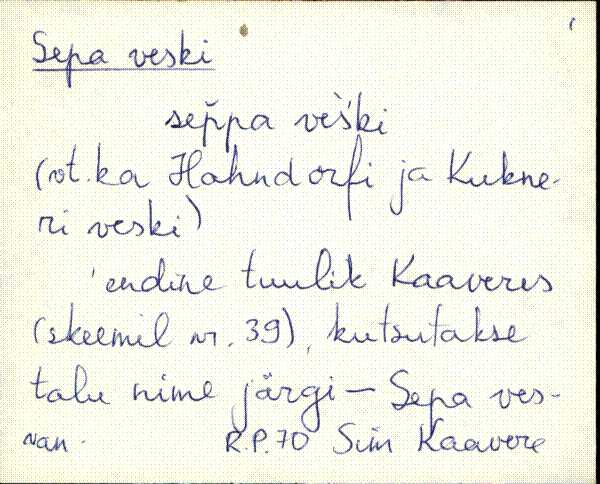 Sepa veski
seppa veš́ki
(vt. ka Hahndorfi ja Kukne-
ri veski)
endine tuulik Kaaveres
(skeemil nr. 39), kutsutakse
talu nime järgi — Sepa ves-
R.P. 70 Sim Kaavere